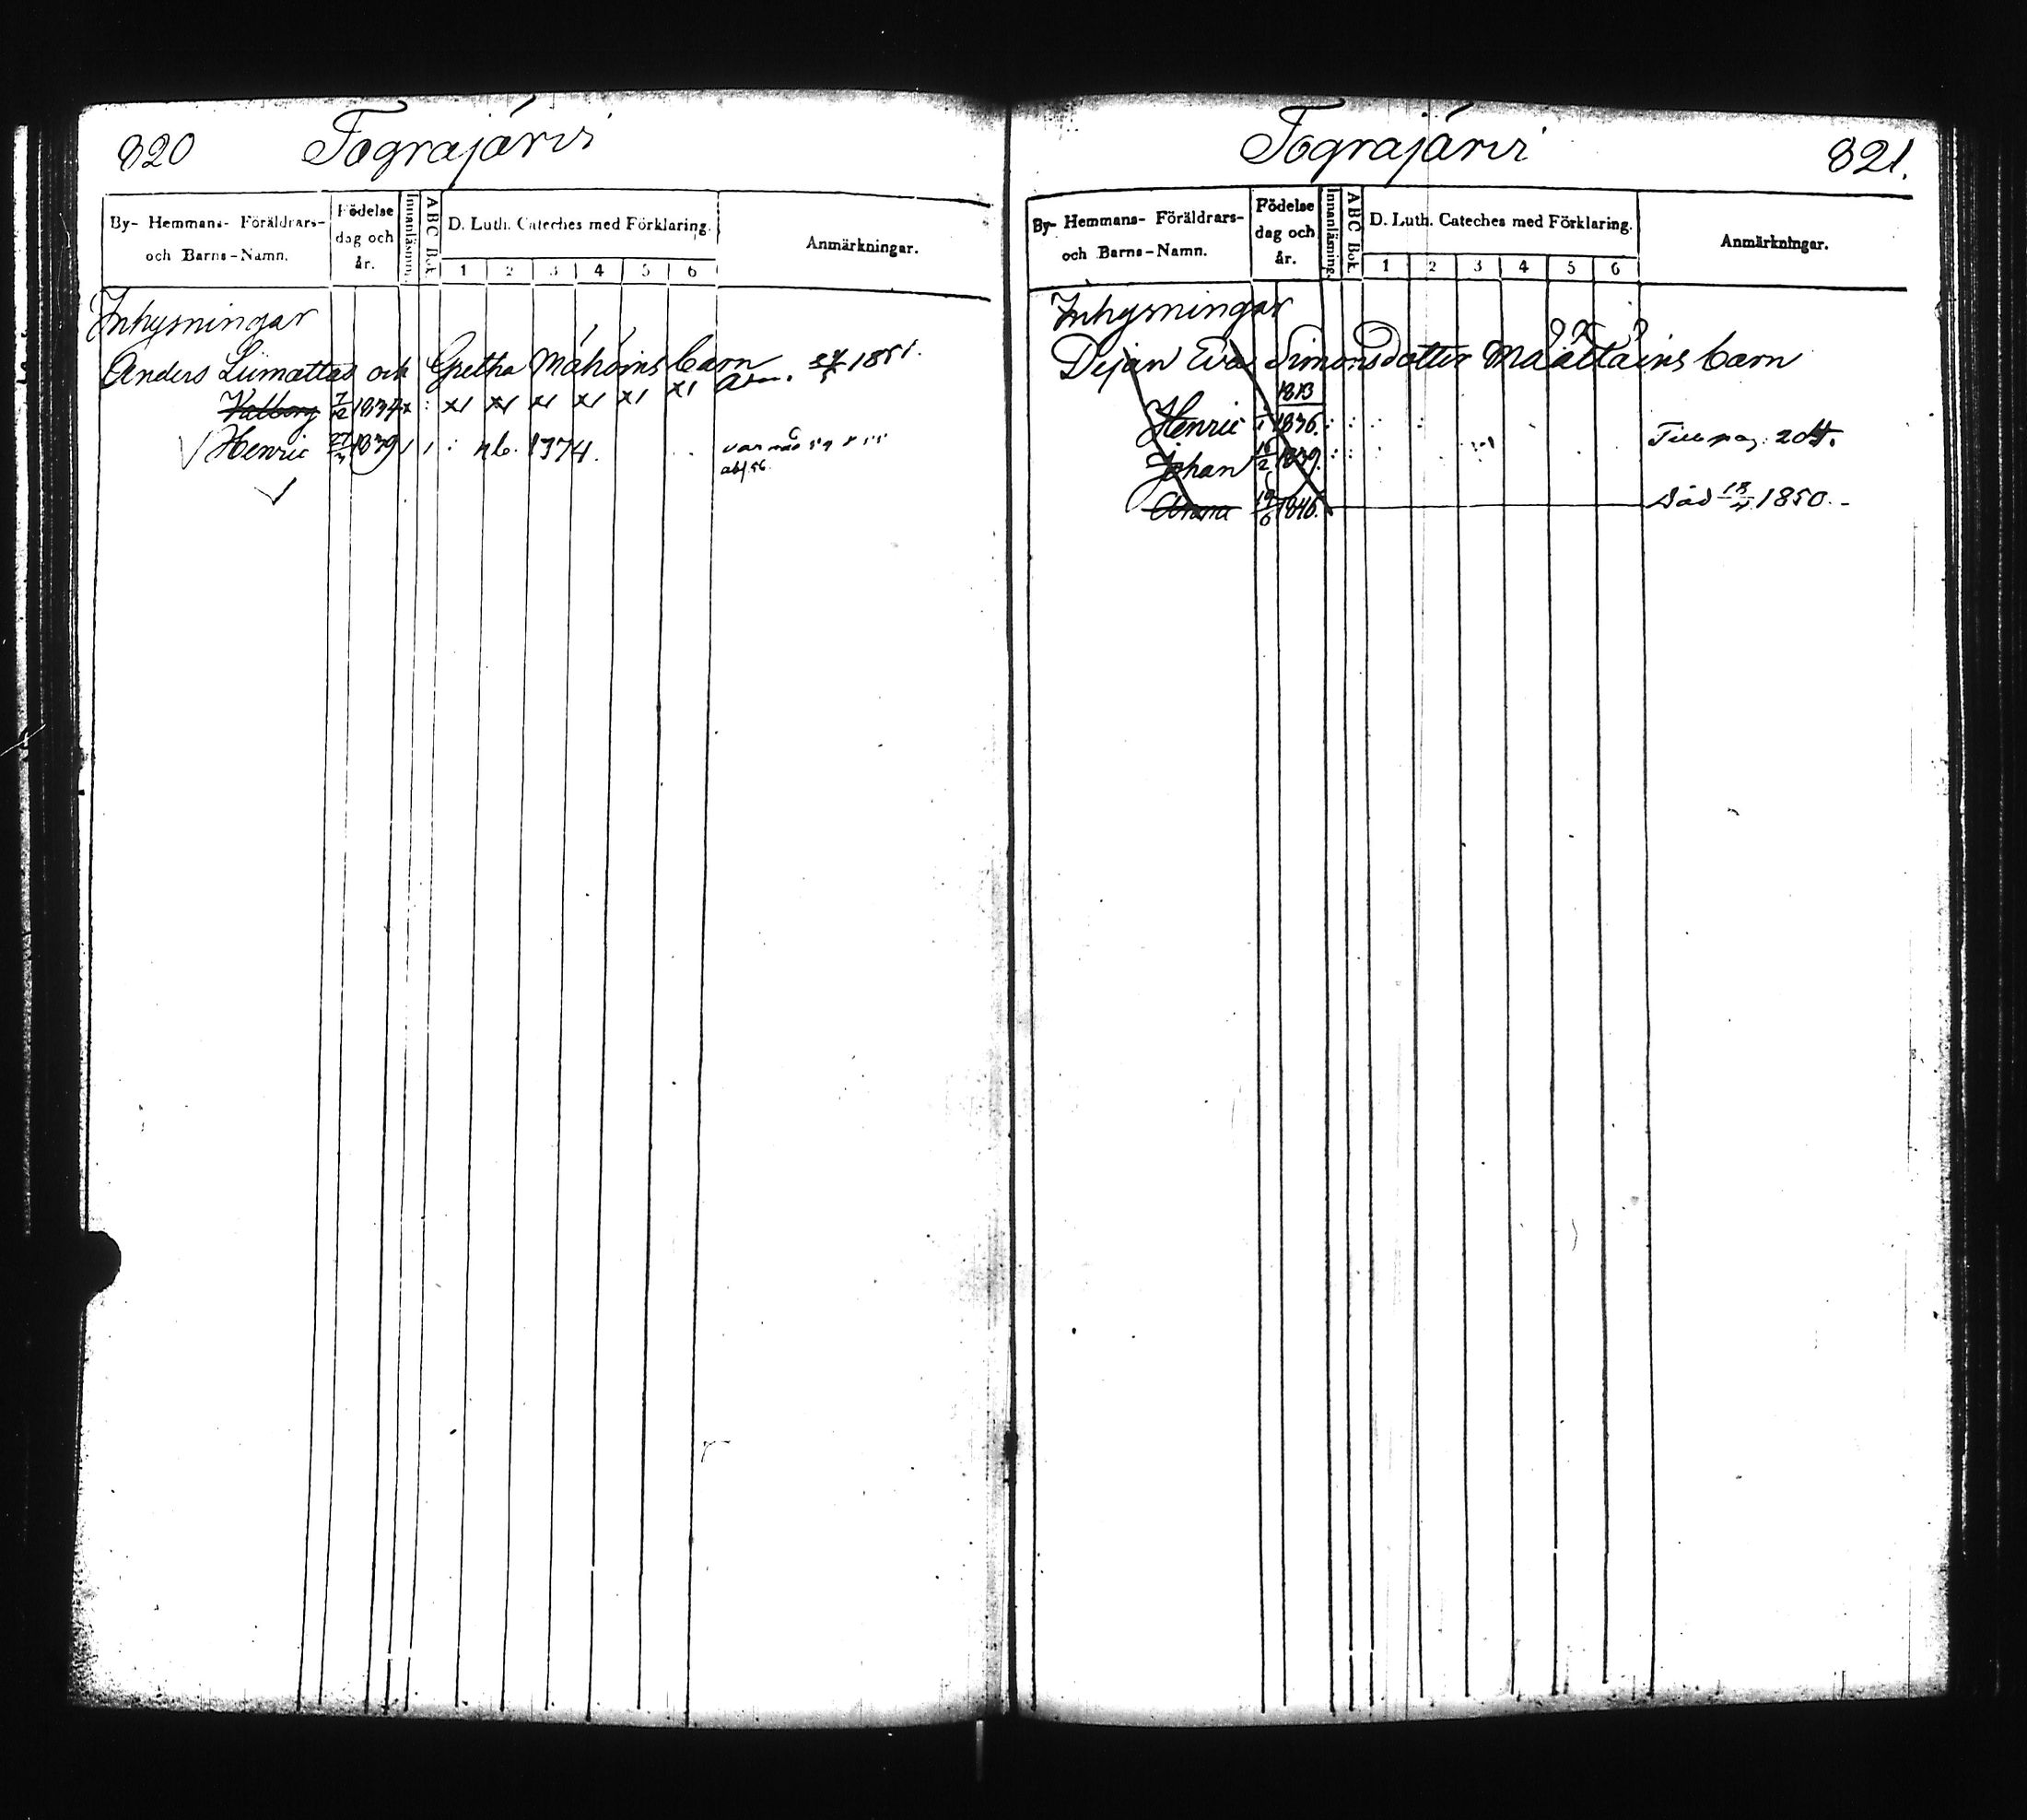 320 Tograjärvi
By- Hemmans- Föräldrars- och Barns-Namn. Födelse dag och år. Innanläsning. ABC Bok. D. Luth. Cateches med Förklaring. 1 2 3 4 5 6 Anmärkningar.
Inhysningar
Anders Liimattas och Gretha Mähöins barn
Valborg 7/12 1837 x : x1 x1 x1 x1 x1 x1 1851.
Henric 27/3 1839 1 1 : nb. 1374.
abs. 56.
Tograjärvi 321.
By- Hemmans- Föräldrars- och Barns-Namn. Födelse dag och år. Innanläsning. ABC Bok. D. Luth. Cateches med Förklaring. 1 2 3 4 5 6 Anmärkningar.
Inhysningar
Dejan Eva Simonsdotter Määttäins barn
1813
Henric 1836. Till pag. 204.
Johan 16/2 1839.
Anna 19/6 1846. Död 18/4 1850.